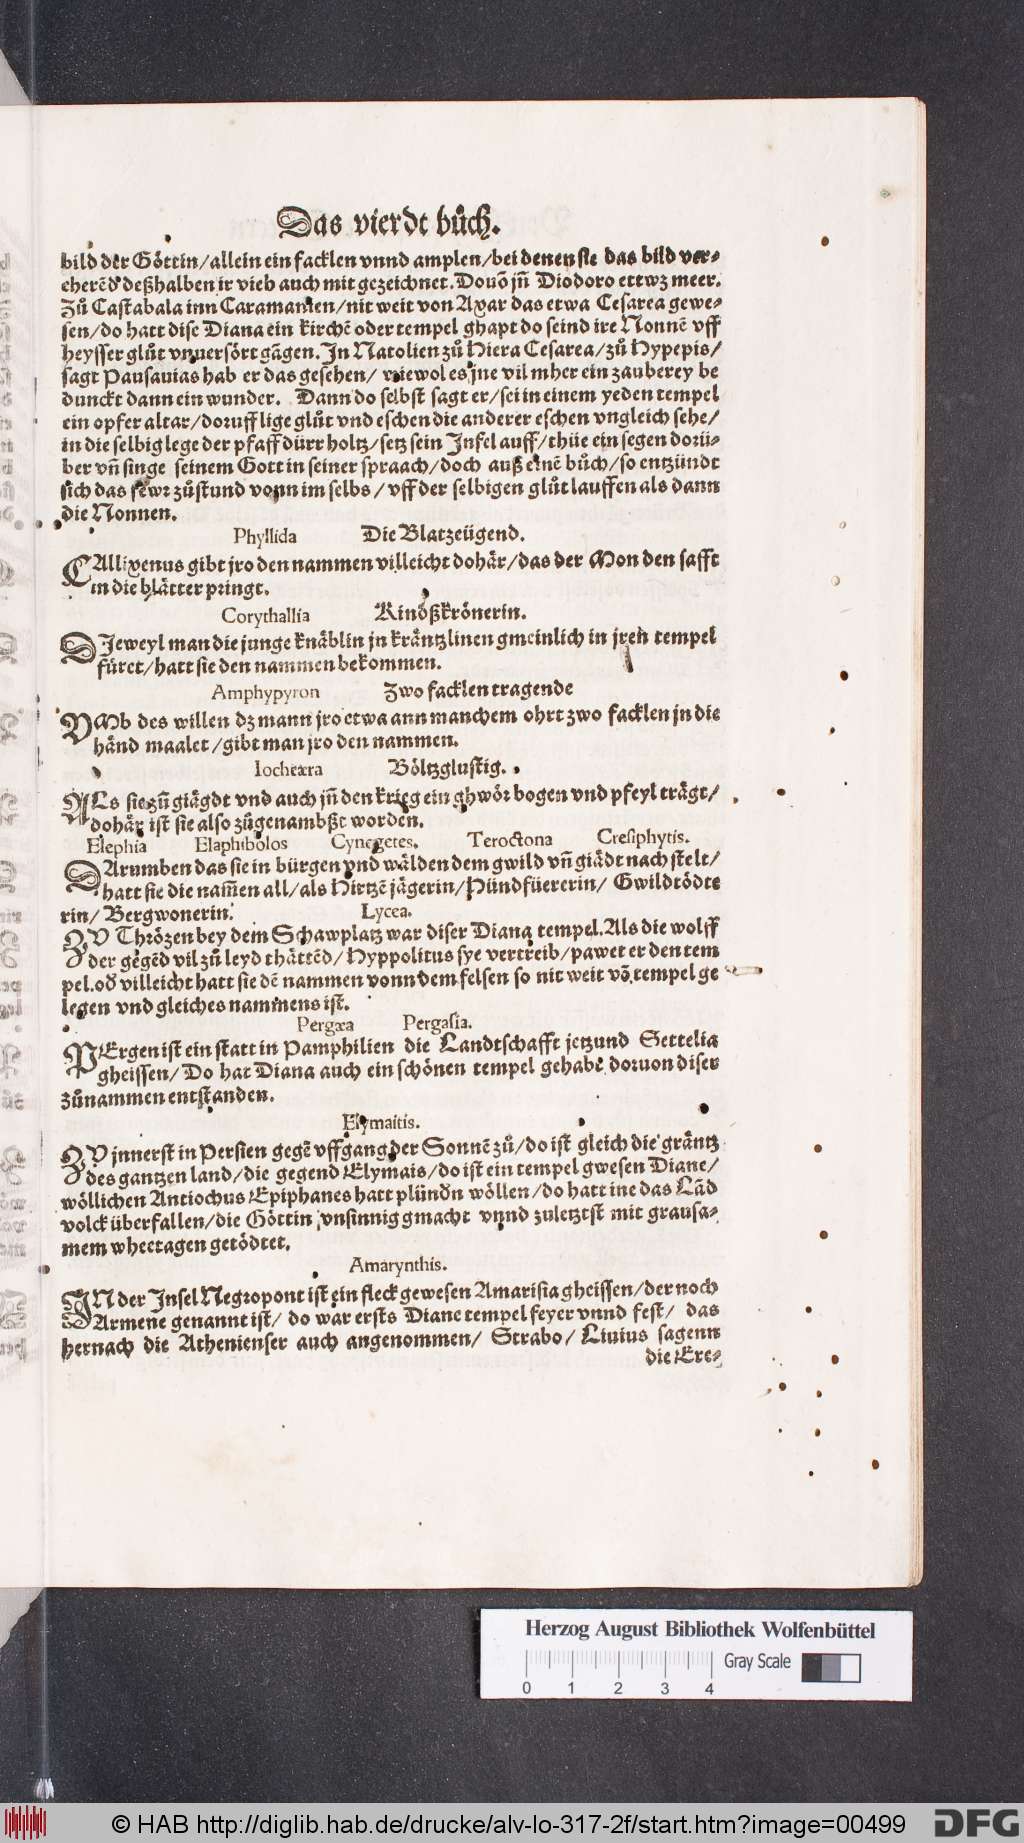 Das vierdt bůch.
bild der Göttin/ allein ein facklen vnnd amplen/ bei denen sie das bild ver-
eherēd deßhalben ir vieh auch mit gezeichnet. Douō jñ Diodoro ettwz meer.
Zů Castabala inn Caramanien/ nit weit von Axar das etwa Cesarea gewe-
sen/ do hatt dise Diana ein kirchē oder tempel ghapt do seind ire Nonnē vff
heysser glůt vnuersört gāgen. In Natolien zů Hiera Cesarea/ zů Hypepis/
sagt Pausauias hab er das gesehen/ wiewol es jne vil mher ein zauberey be
dunckt dann ein wunder. Dann do selbst sagt er/ sei in einem yeden tempel
ein opfer altar/ doruff lige glůt vnd eschen die anderer eschen vngleich sehe/
in die selbig lege der pfaff dürr holtz/ setz sein Infel auff/ thüe ein segen dorü-
ber vñ singe seinem Gott in seiner spraach/ doch auß einē bůch/ so entzündt
sich das fewr zůstund vonn im selbs/ vff der selbigen glůt lauffen als dann
die Nonnen.
Phyllida Die Blatzeügend.
CAllixenus gibt jro den nammen villeicht dohär/ das der Mon den safft
in die blätter pringt.
Corythallia Kindßkrönerin.
DIeweyl man die junge knäblin jn kräntzlinen gmeinlich in jren tempel
füret/ hatt sie den nammen bekommen.
Amphypyron Zwo facklen tragende
VMb des willen dz mann jro etwa ann manchem ohrt zwo facklen jn die
händ maalet/ gibt man jro den nammen.
Iocheæra Böltzglustig.
ALs sie zů giägdt vnd auch jñ den krieg ein ghwör bogen vnd pfeyl trägt/
dohär ist sie also zůgenambßt worden.
Elephia Elaphibolos Cynegetes. Teroctona Cresiphytis.
DArumben das sie in bürgen vnd wälden dem gwild vñ giädt nach stelt/
hatt sie die nam̄en all/ als Hirtzē jägerin/ Hündfüererin/ Gwildtödte
rin/ Bergwonerin. Lycea.
ZV Thrözen bey dem Schawplatz war diser Diana tempel. Als die wolff
der gegēd vil zů leyd thättēd/ Hyppolitus sye vertreib/ pawet er den tem
pel. oď villeicht hatt sie dē nammen vonn dem felsen so nit weit vō tempel ge
legen vnd gleiches nammens ist.
Pergæa Pergasia.
PErgen ist ein statt in Pamphilien die Landtschafft jetzund Settelia
gheissen/ Do hat Diana auch ein schönen tempel gehabt doruon diser
zůnammen entstanden.
Elymaitis.
ZV jnnerst in Persien gegē vffgang der Sonnē zů/ do ist gleich die gräntz
des gantzen land/ die gegend Elymais/ do ist ein tempel gwesen Diane/
wöllichen Antiochus Epiphanes hatt plünďn wöllen/ do hatt ine das Lād
volck überfallen/ die Göttin vnsinnig gmacht vnnd zuletztst mit grausa-
mem wheetagen getödtet.
Amarynthis.
IN der Insel Negropont ist ein fleck gewesen Amarisia gheissen/ der noch
Armene genannt ist/ do war ersts Diane tempel feyer vnnd fest/ das
hernach die Athenienser auch angenommen/ Strabo/ Liuius sagenn
die Ere-
Herzog August Bibliothek Wolfenbüttel
Gray Scale
0 1 2 3 4
© HAB http://diglib.hab.de/drucke/alv-lo-317-2f/start.htm?image=00499
DFG